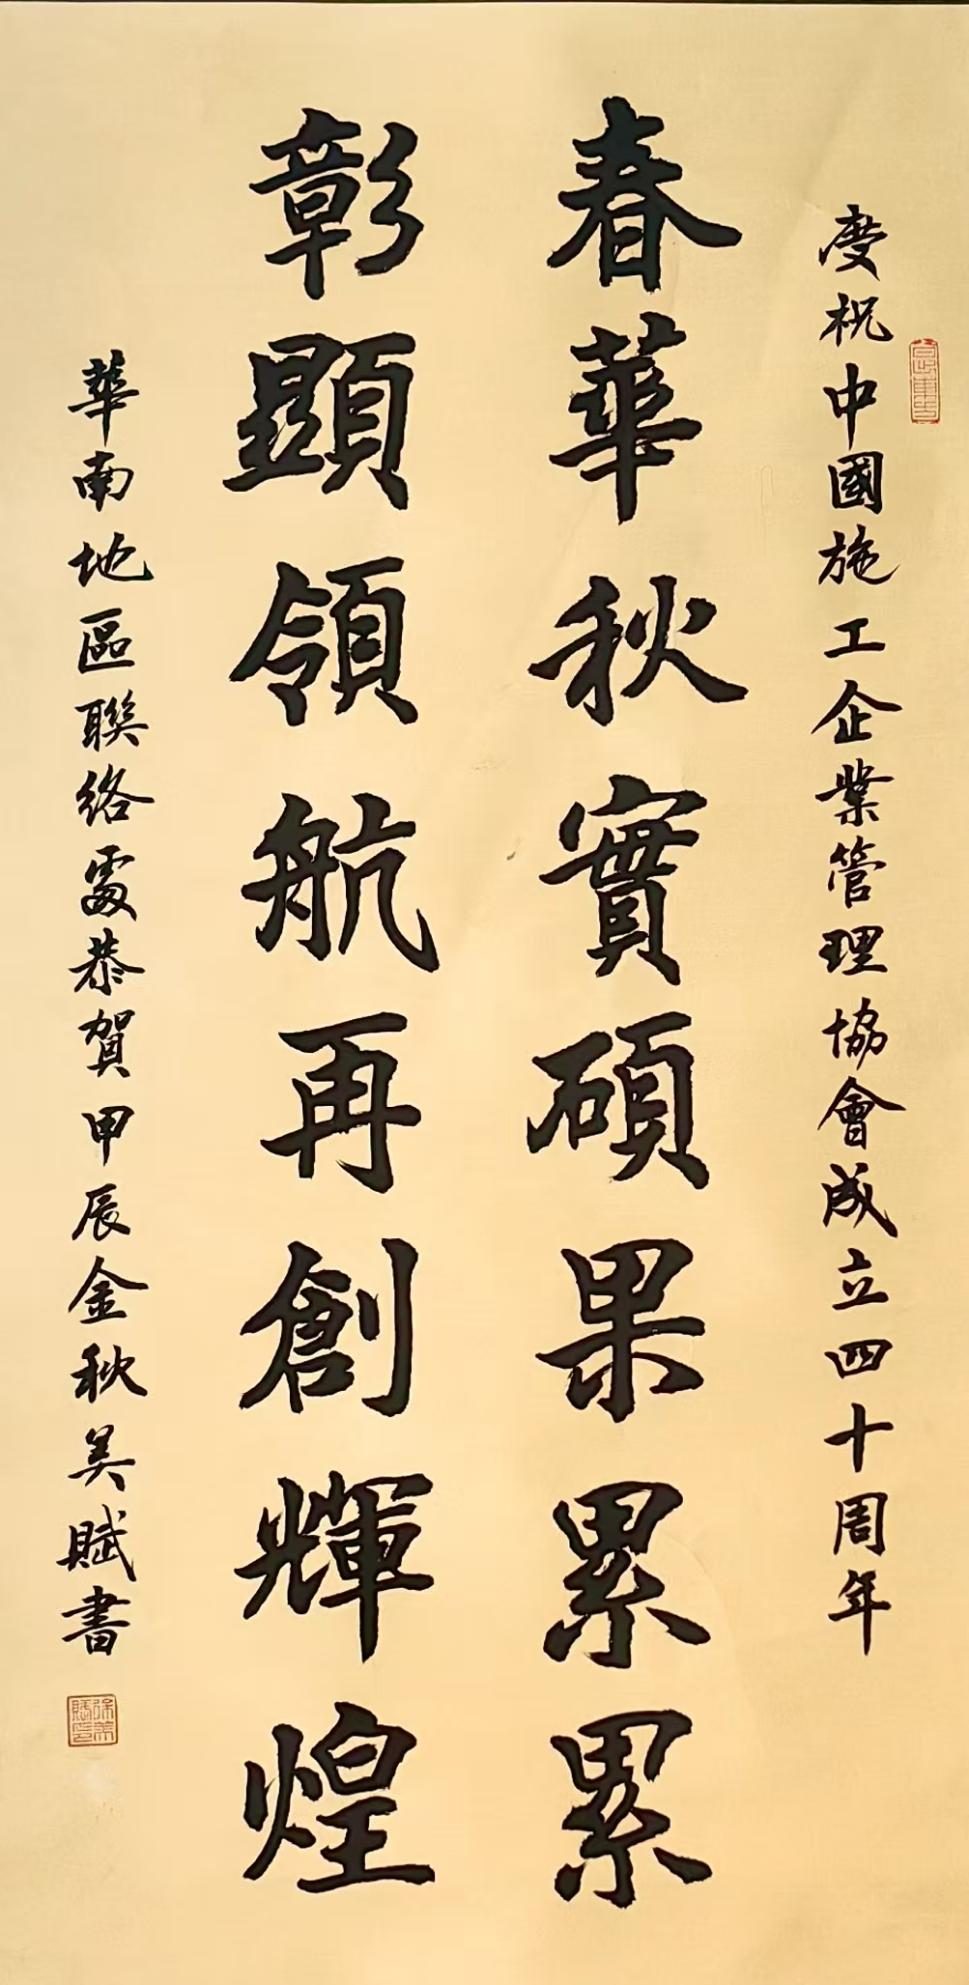 慶祝中國施工企業管理協會成立四十周年
春華秋實碩果累累
彰顯領航再創輝煌
華南地區聯絡處恭賀甲辰金秋美賦書
徐美賦印